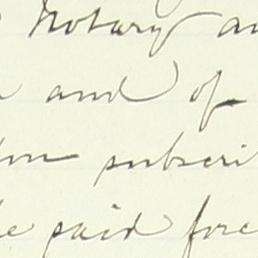 Notary
and of
subscri
paid fore